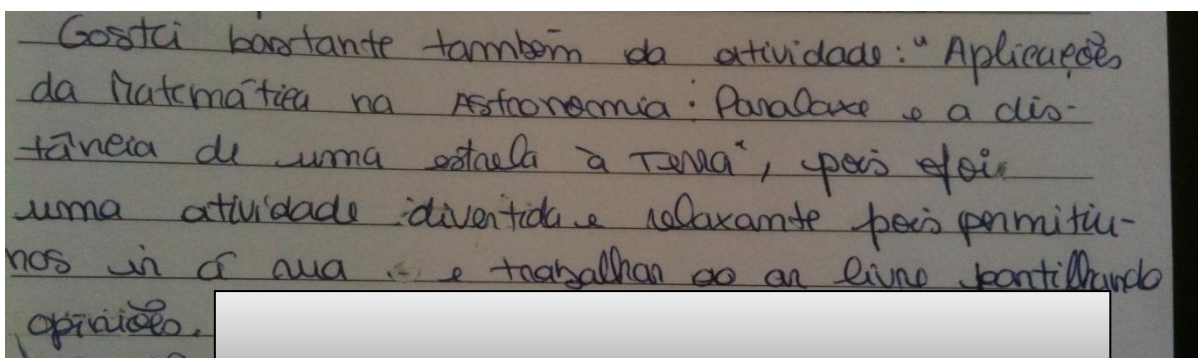 Gostei bastante também da atividade: "Aplicações
da Matemática na Astronomia: Paralaxe e a dis-
tância de uma estrela à Terra", pois foi
uma atividade divertida e relaxante pois permitiu-
nos ir á rua e trabalhar ao ar livre partilhando
opiniões.